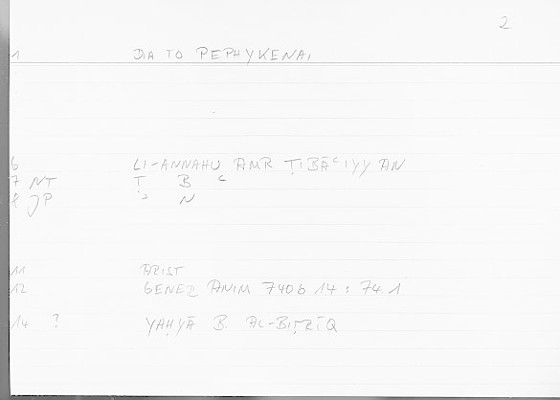 2
1 DIA TO PEPHYKENAI
6 LI-ANNAHU AMR ṬIBĀʿIYY AN
7 NT Ṭ B ʿ
8 JP ʾ N
11 ARIST
12 GENER ANIM 740b 14 : 74.1
14 ? YAḤYĀ B. AL-BIṬRĪQ